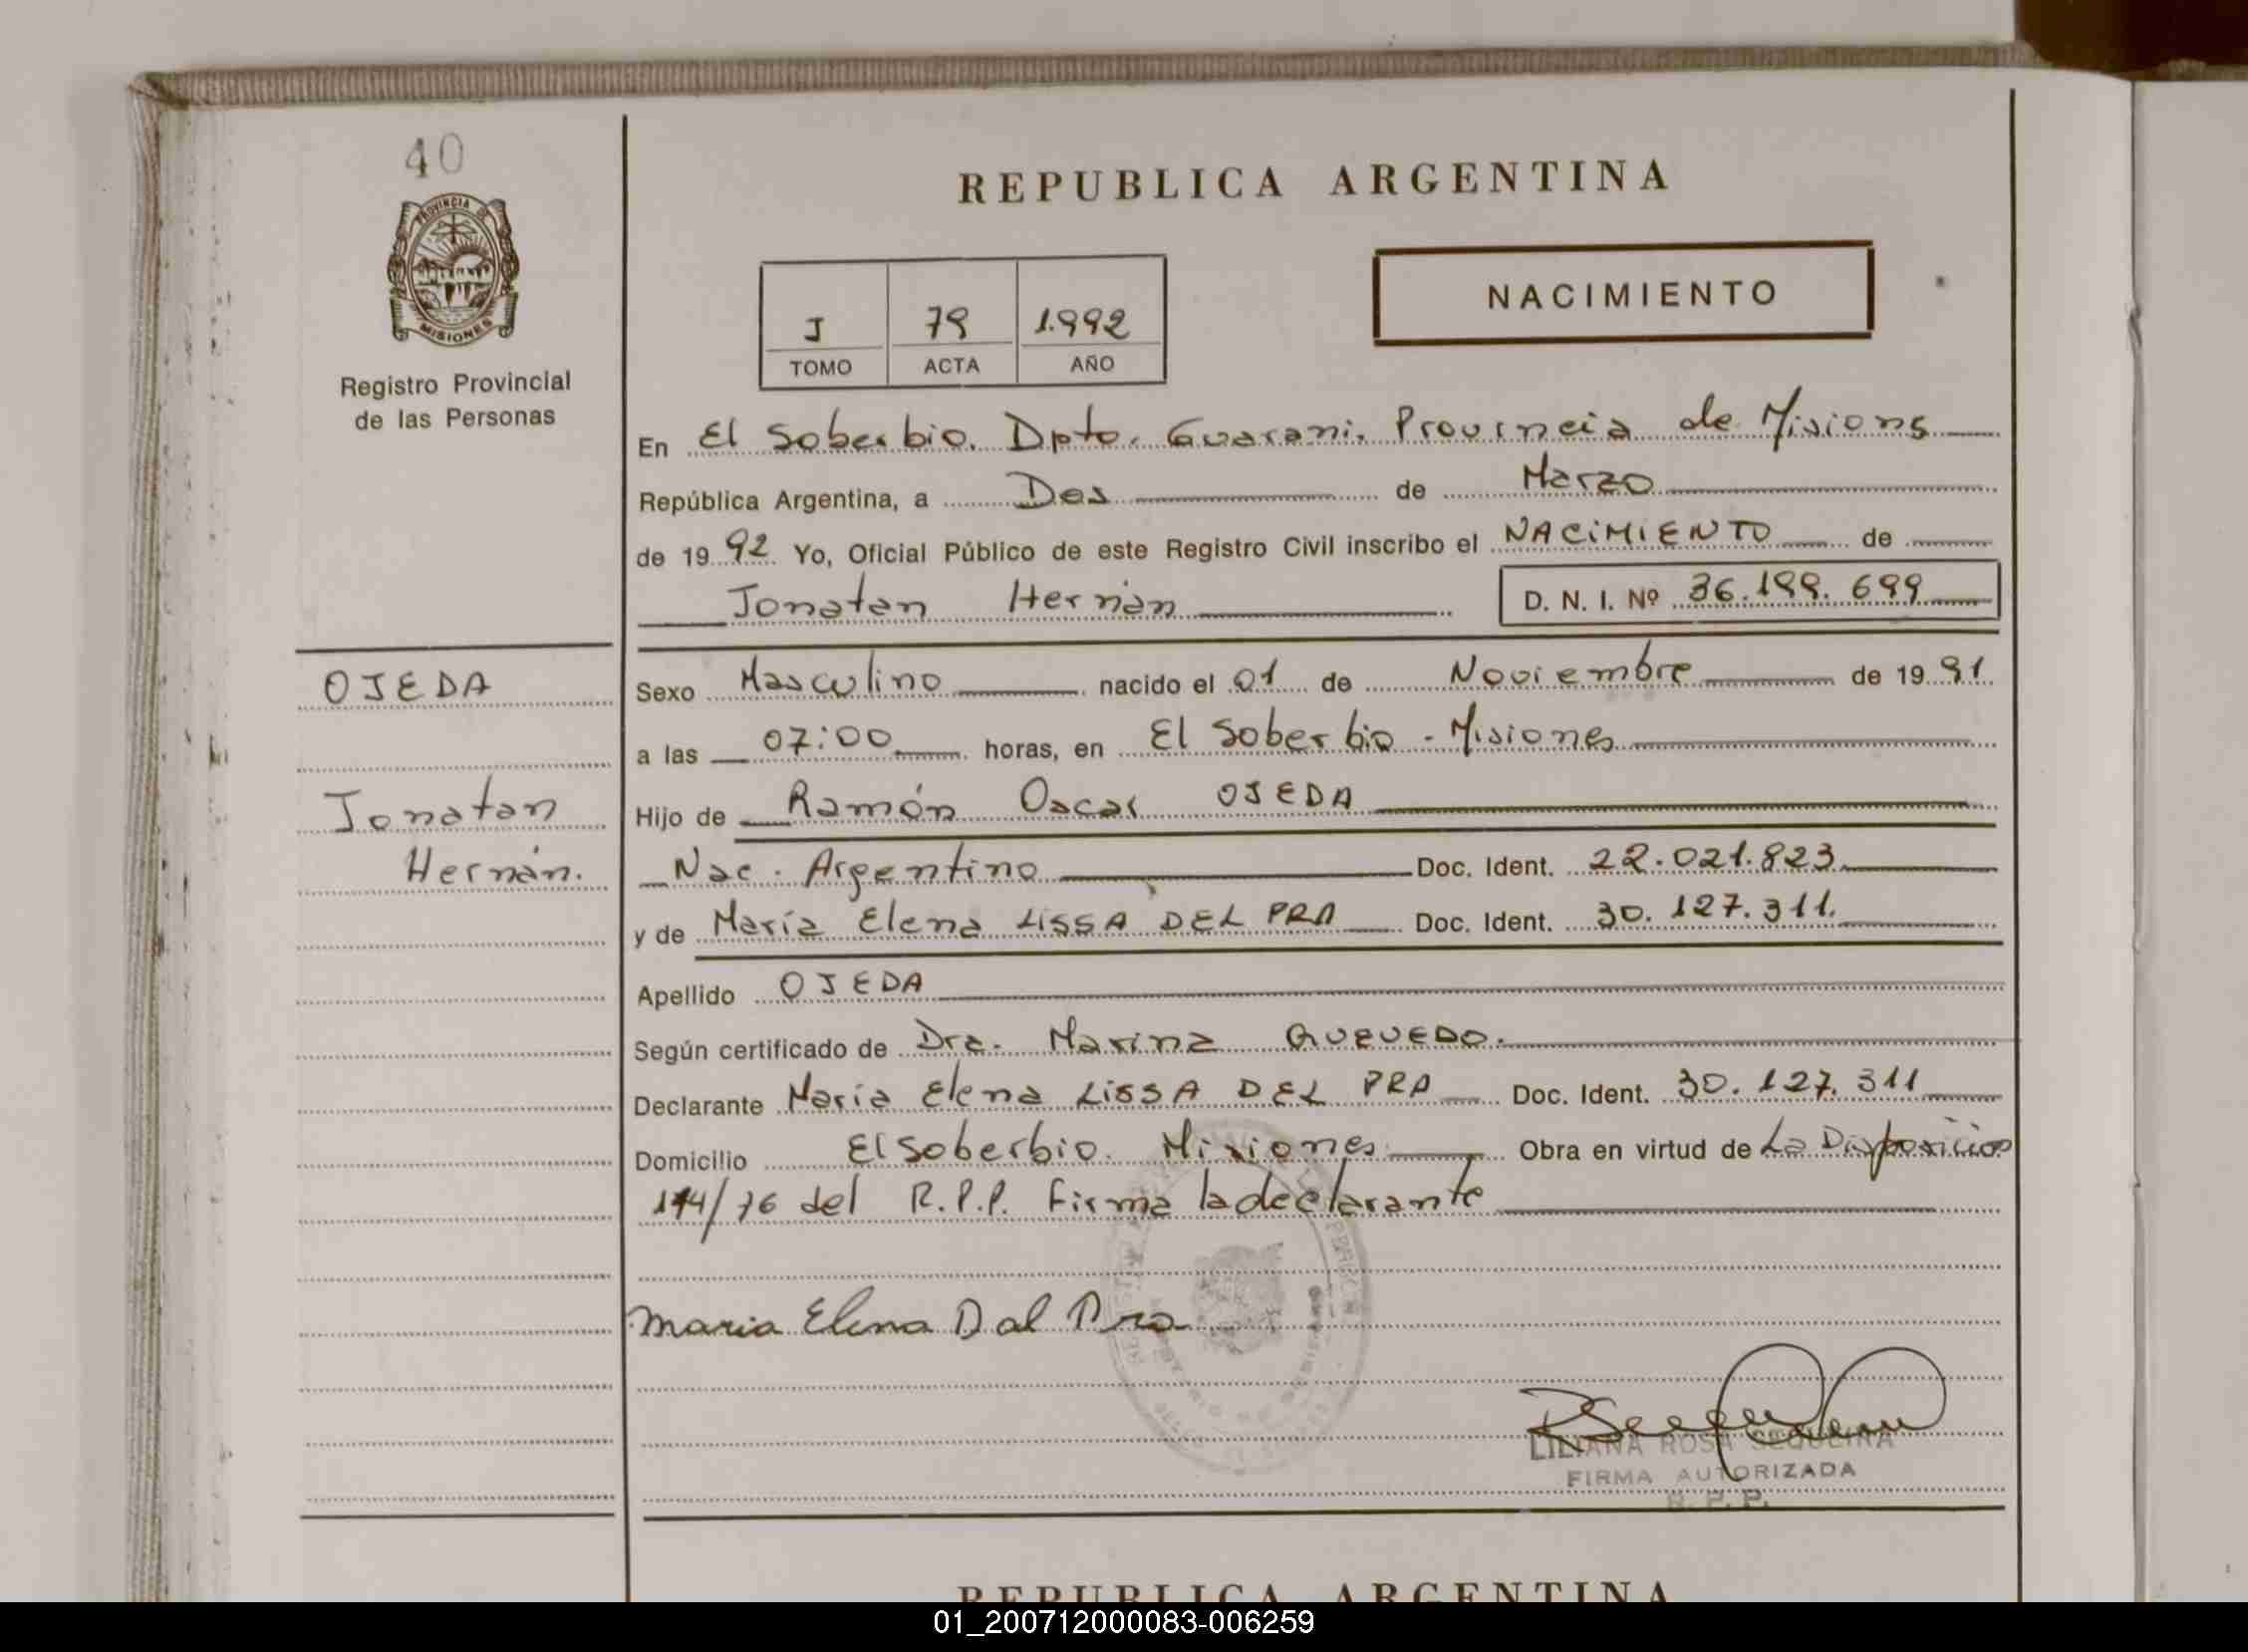 40
PROVINCIA DE
MISIONES
Registro Provincial
de las Personas
REPUBLICA ARGENTINA
J 79 1.992
TOMO ACTA AÑO
NACIMIENTO
En El Soberbio. Dpto. Guarani. Provincia de Misions
República Argentina, a Dos de Marzo
de 1992 Yo, Oficial Público de este Registro Civil inscribo el NACIMIENTO de
Jonatan Hernán D. N. I. Nº 36.199.699
OJEDA
Jonatan
Hernán.
Sexo Masculino nacido el 01 de Noviembre de 1991.
a las 07:00 horas, en El Soberbio - Misiones
Hijo de Ramón Oscar OJEDA
Nac. Argentino Doc. Ident. 22.021.823.
y de María Elena LISSA DEL PRA Doc. Ident. 30.127.311.
Apellido OJEDA
Según certificado de Dra. Marina QUEVEDO.
Declarante María Elena LISSA DEL PRA Doc. Ident. 30.127.311
Domicilio El Soberbio. Misiones Obra en virtud de La Disposicion
114/76 del R.P.P. Firma la declarante
Maria Elena Dal Pra
LILIANA ROSA SEQUEIRA
FIRMA AUTORIZADA
R. P. P.
REPUBLICA ARGENTINA
01_200712000083-006259